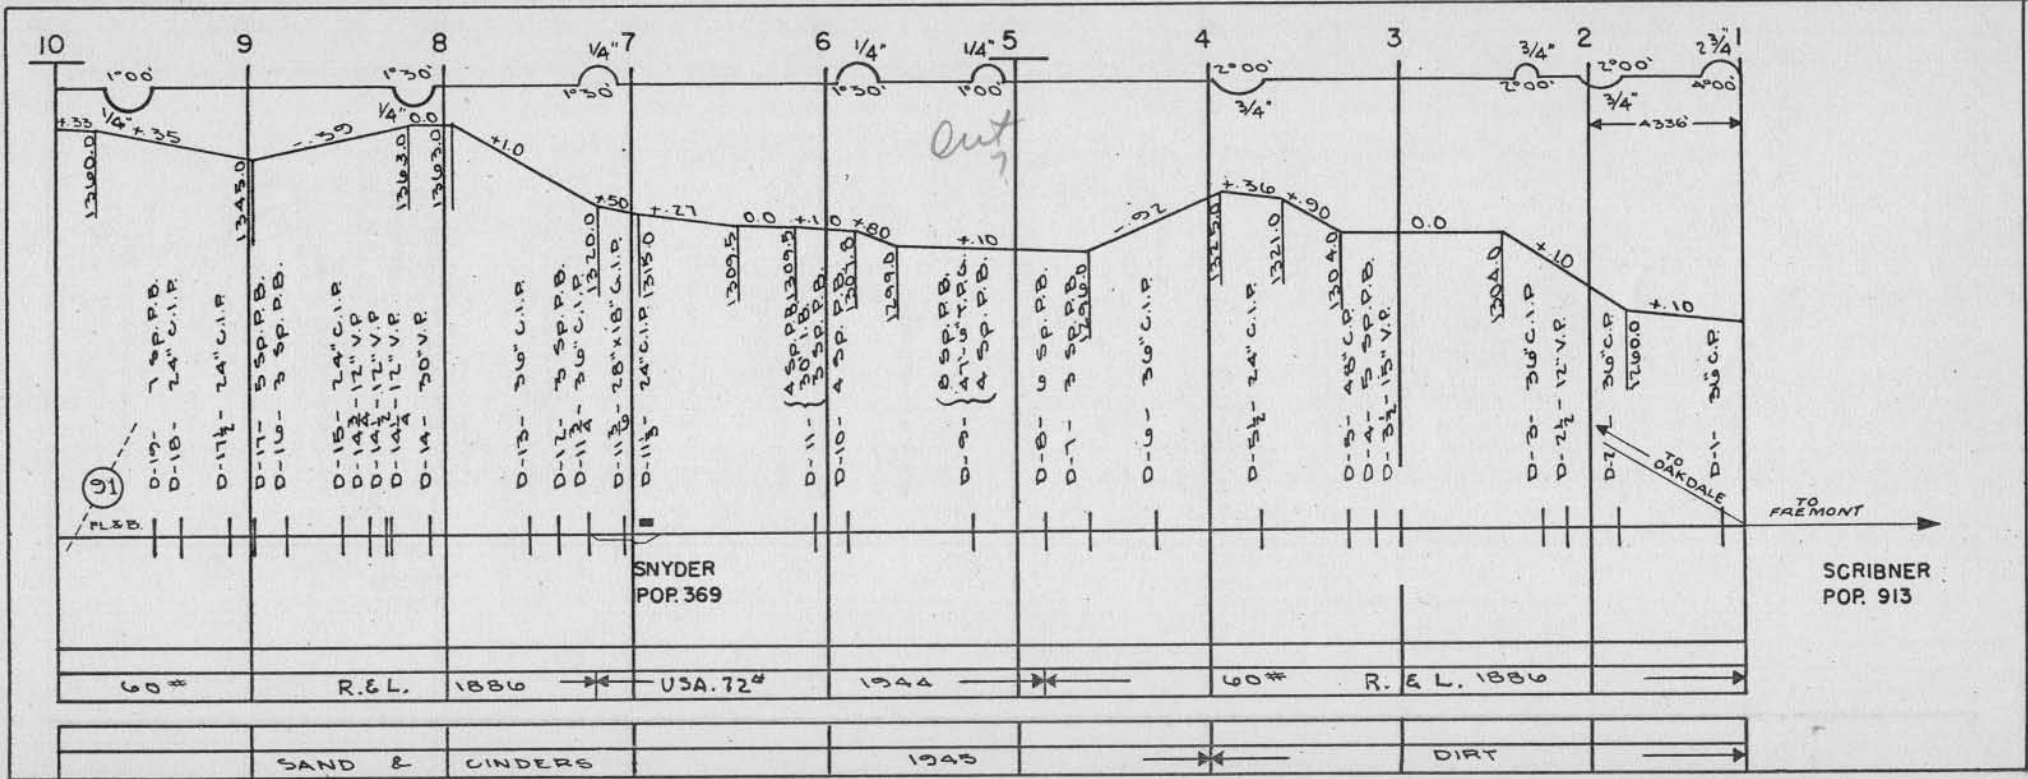 10 9 8 7 6 5 4 3 2 1
1°00' 1°30' 1/4" 1/4" 1/4" 2°00' 3/4" 2°00' 2 3/4"
1/4" 1/4" 1°30' 1°30' 1°00' 3/4" 2°00' 3/4" 4°00'
4336'
Out
+.33 +.35 -.39 0.0 +1.0 +.50 +.27 0.0 +.10 +.80 +.10 -.92 +.36 +.90 0.0 +1.0 +.10
1360.0
1343.0
1363.0
1363.0
1320.0
1315.0
1309.5
1309.5
1307.0
1299.0
1296.0
1325.0
1321.0
1304.0
1304.0
1260.0
D-19- 7 SP. P.B.
D-18- 24" C.I.P.
D-17½- 24" C.I.P.
D-17- 5 SP. P.B.
D-16- 3 SP. P.B.
D-15- 24" C.I.P.
D-14¾- 12" V.P.
D-14½- 12" V.P.
D-14¼- 12" V.P.
D-14- 30" V.P.
D-13- 36" C.I.P.
D-12- 3 SP. P.B.
D-11¾- 36" C.I.P.
28" X 18" C.I.P.
24" C.I.P.
D-11- 4 SP. P.B.
30' I.B.
3 SP. P.B.
D-10- 4 SP. P.B.
8 SP. P.B.
D-9- 47'-6" T.P.G.
4 SP. P.B.
D-8- 6 SP. P.B.
D-7- 3 SP. P.B.
D-6- 36" C.I.P.
D-5½- 24" C.I.P.
D-5- 48" C.P.
D-4- 5 SP. P.B.
D-3½- 15" V.P.
D-3- 36" C.I.P.
D-2½- 12" V.P.
D-2 36" C.P.
D-1- 36" C.P.
91
PL.&B.
TO OAKDALE
TO FREMONT
SNYDER
POP. 369
SCRIBNER
POP. 913
60# R.&L. 1886 USA. 72# 1944 60# R.&L. 1886
SAND & CINDERS 1945 DIRT